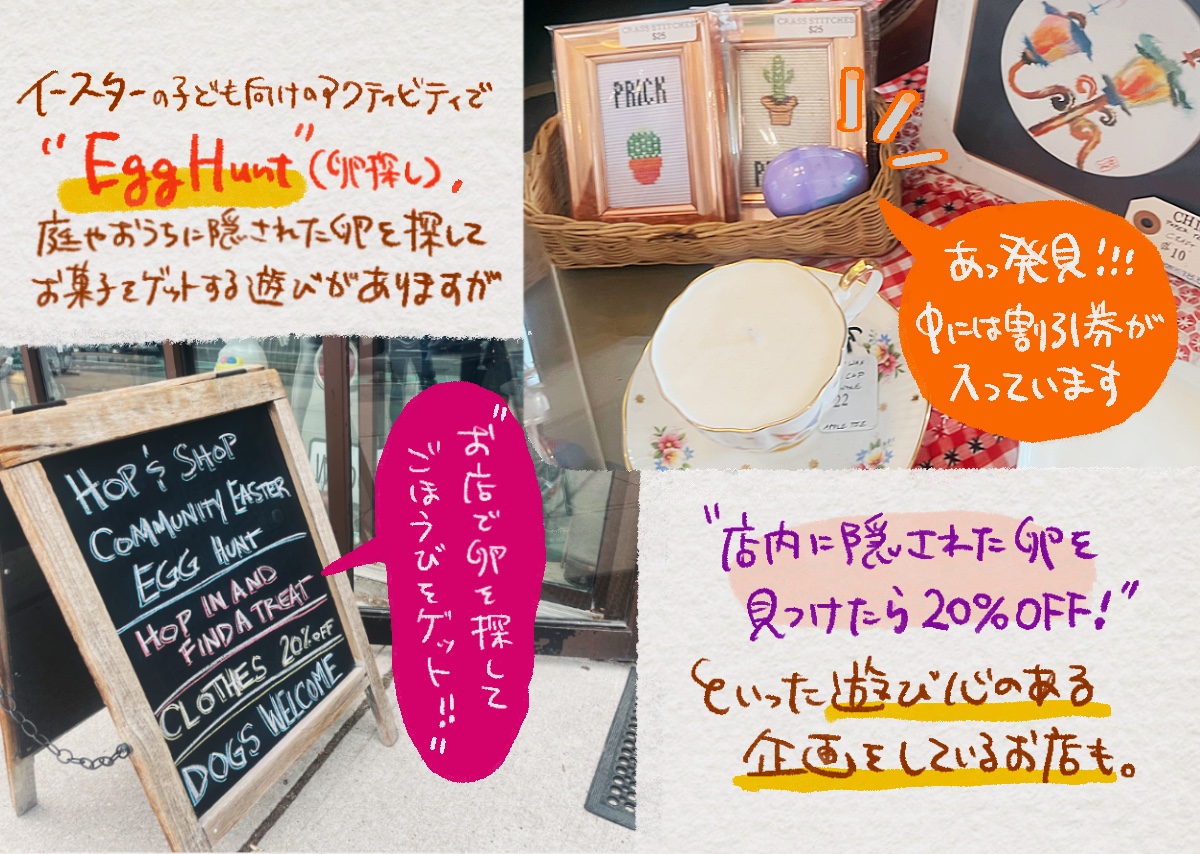 イースターの子ども向けのアクティビティで
“Egg Hunt”(卵探し)、
庭やおうちに隠された卵を探して
お菓子をゲットする遊びがありますが
CRASS STITCHES
$25
CRASS STITCHES
$25
PRICK
あっ発見!!!
中には割引券が
入っています
10
22
APPLE TREE
HOP & SHOP
COMMUNITY EASTER
EGG HUNT
HOP IN AND
FIND A TREAT
CLOTHES 20% OFF
DOGS WELCOME
“お店で卵を探して
ごほうびをゲット!!”
“店内に隠された卵を
見つけたら20%OFF!”
といった遊び心のある
企画をしているお店も。